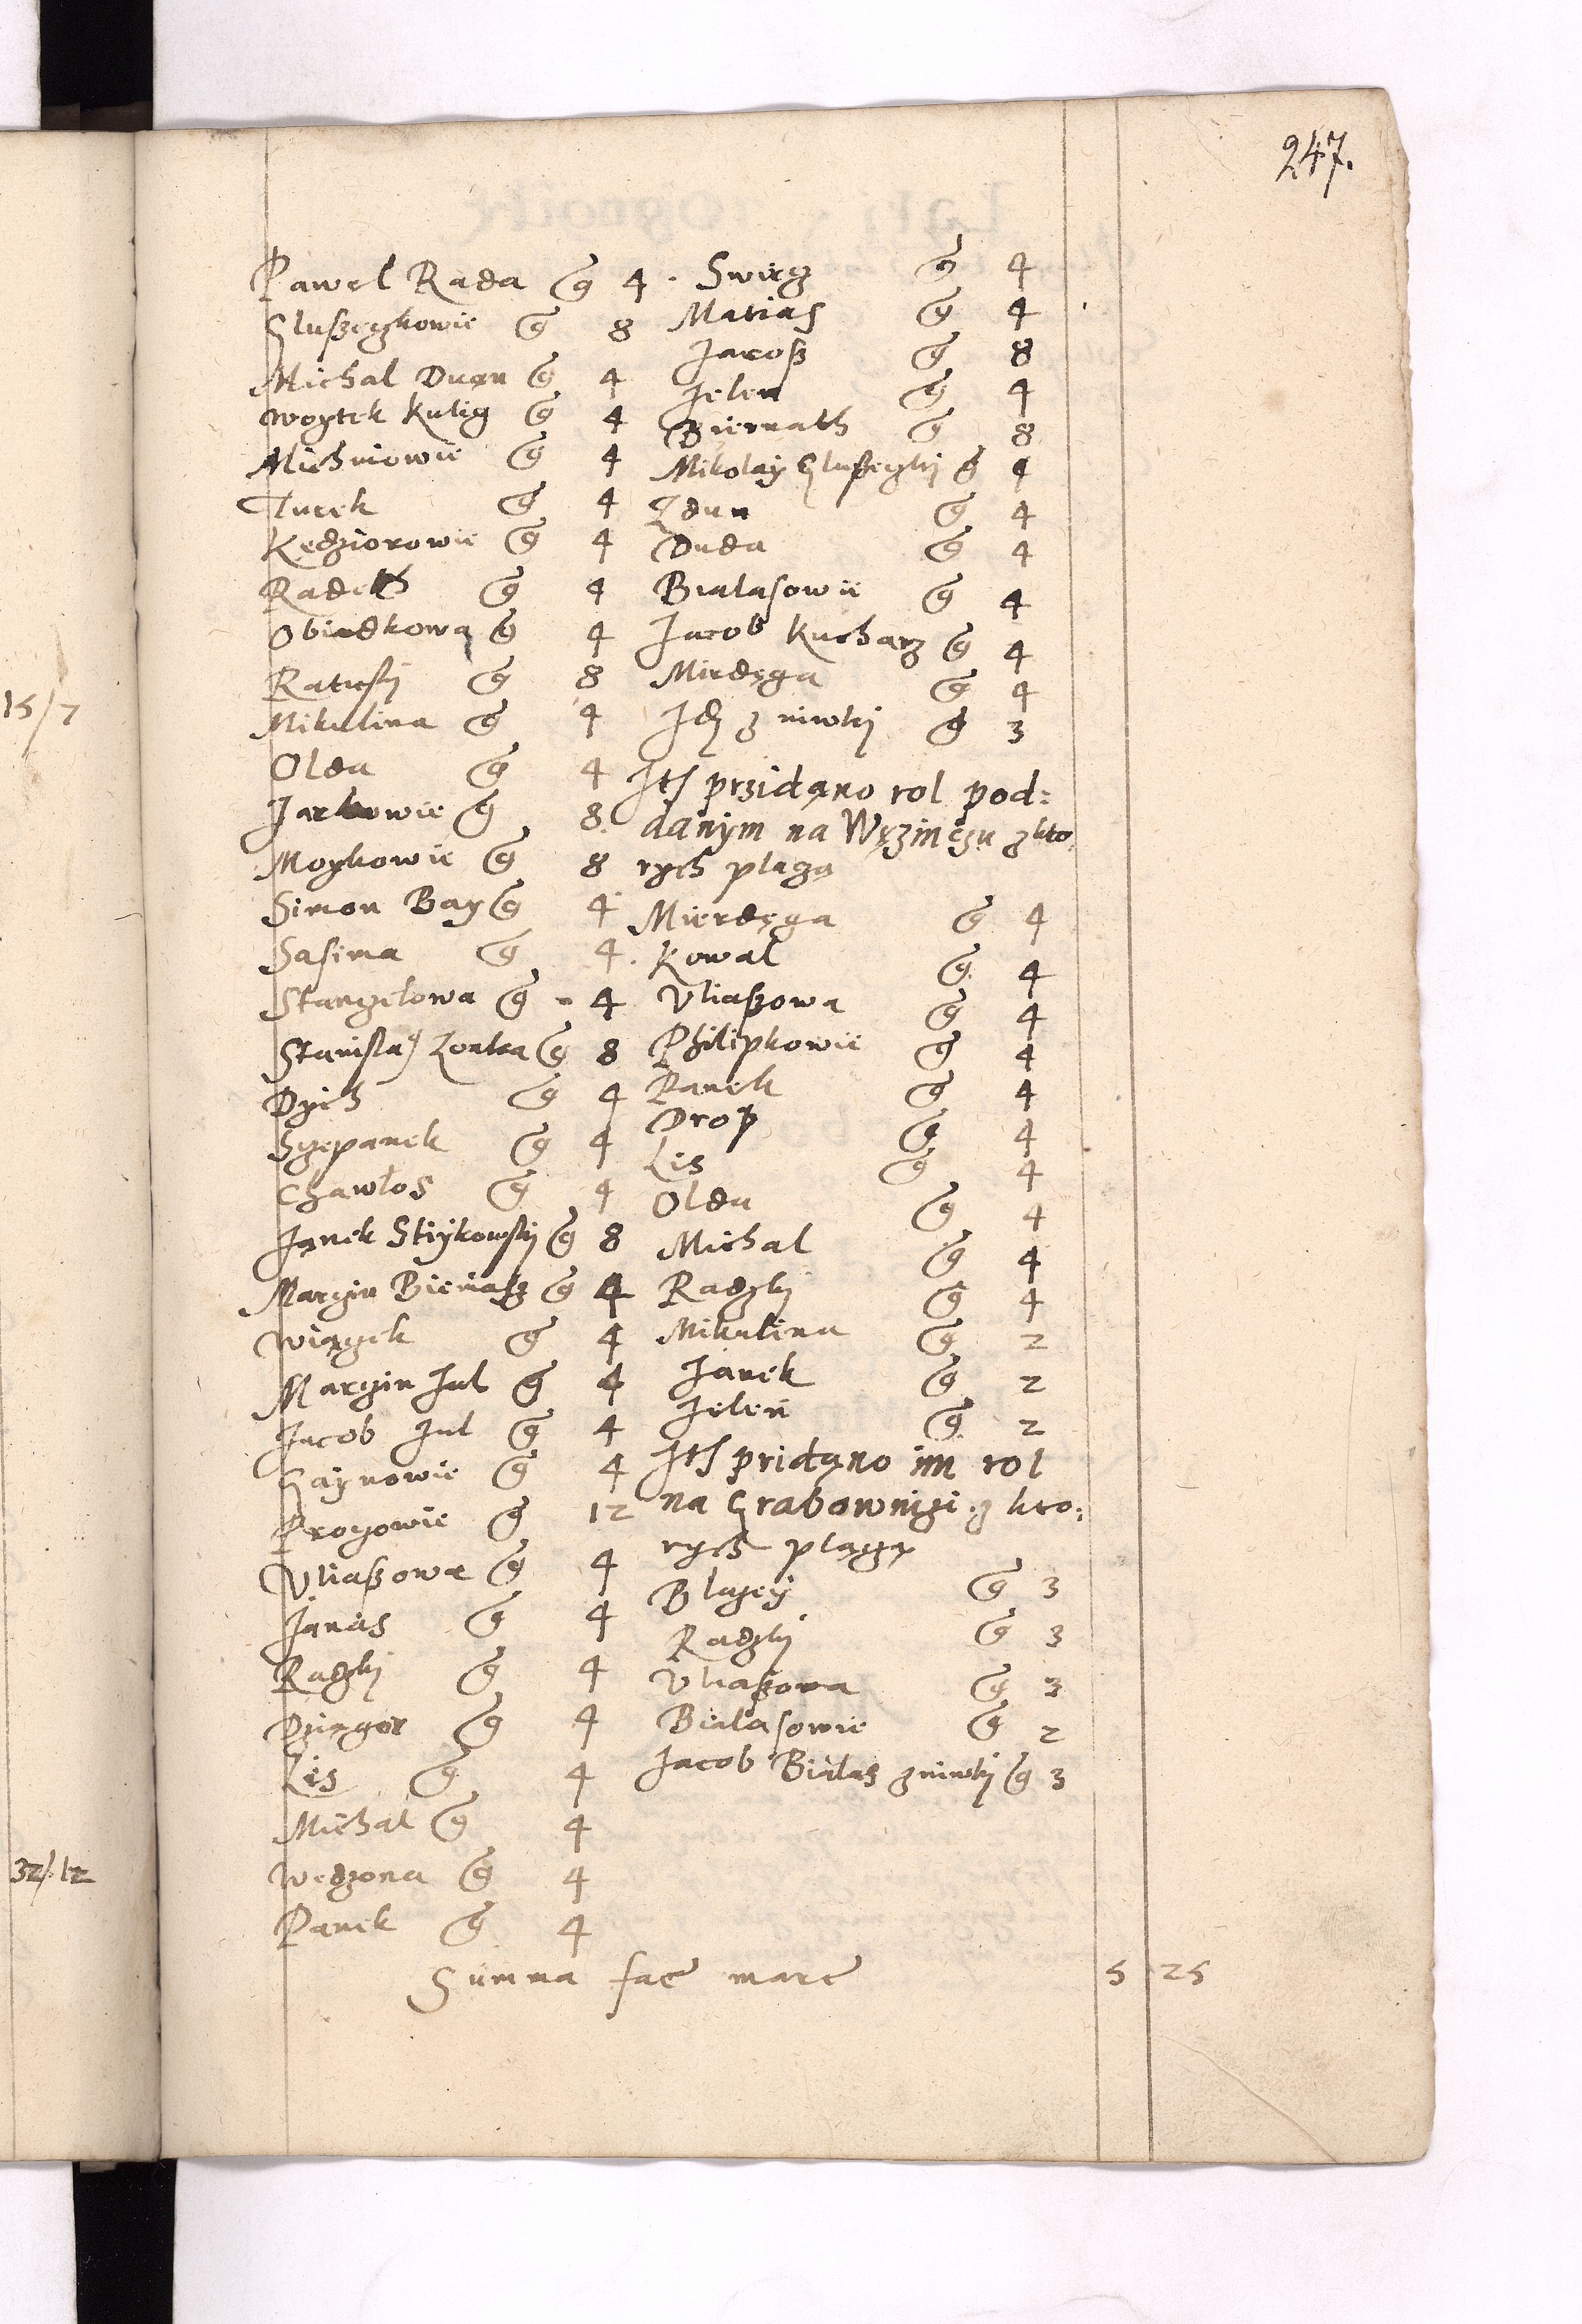 247.
Pawel Rada g 4
Gluszczkowie g 8
Michal Duan g 4
Woytek Kulig g 4
Michniowie g 4
Turek g 4
Kędziorowie g 4
Radek g 4
Obiadkowa g 4
Ratuski g 8
Mikulina g 4
Olda g 4
Jarkowie g 8
Moykowie g 8
Simon Bay g 4
Sasima g 4
Stangelowa g 4
Stanislaw Lontka g 8
Dyich g 4
Szczepanek g 4
Chawlos g 4
Janek Striykowskij g 8
Marcin Bieniasz g 4
Wiązek g 4
Marcin Jul g 4
Jacob Jul g 4
Gaynowie g 4
Procowie g 12
Uliaszowa g 4
Janas g 4
Radzkij g 4
Dzięgor g 4
Lis g 4
Michal g 4
Wędzona g 4
Panek g 4
Swircz g 4
Matias g 4
Jarosz g 8
Jelen g 4
Biernath g 8
Mikolaÿ Gluszczkij g 4
Zdun g 4
Duda g 4
Bialasowie g 4
Jacob Kucharz g 4
Mierdęga g 4
z niwkij g 3
Jt przidąno rol pod=
danÿm na Węzinczu z kto
rÿch placzą
Mierdęga g 4
Kowal g 4
Uliaszowa g 4
Philipkowie g 4
Panek g 4
Drop g 4
Lis g 4
Olda g 4
Michal g 4
Radzkij g 4
Mikulina g 2
Janek g 2
Jelen g 2
Jt pridąno im rol
na Grabownici z kto:
rych placzą
Blazeÿ g 3
Radzkij g 3
Uliaszowa g 3
Bialasowie g 2
Jacob Bialas z niwkij g 3
Summa fac marc 5 25
15/7
32/12